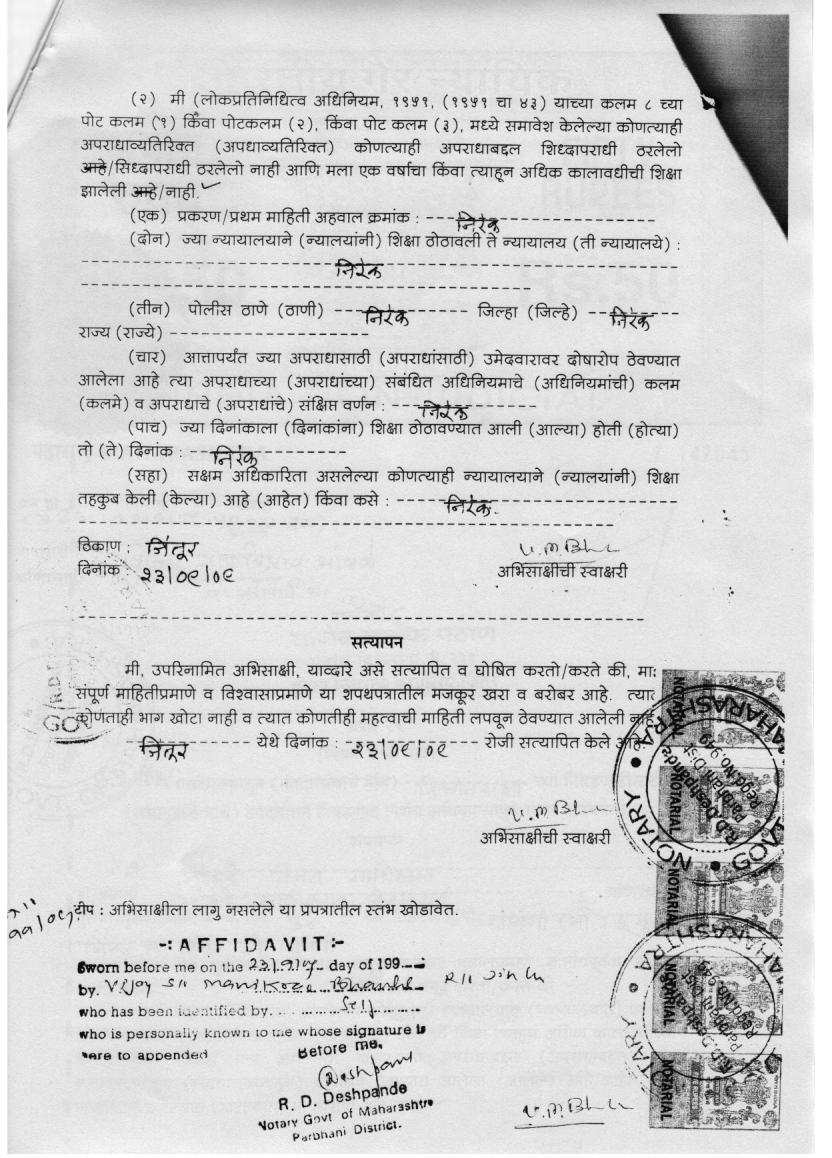 (२) मी (लोकप्रतिनिधित्व अधिनियम, १९५१, (१९५१ चा ४३) याच्या कलम ८ च्या
पोट कलम (१) किंवा पोटकलम (२), किंवा पोट कलम (३), मध्ये समावेश केलेल्या कोणत्याही
अपराधाव्यतिरिक्त (अपधाव्यतिरिक्त) कोणत्याही अपराधाबद्दल शिध्दापराधी ठरलेलो
आहे/सिध्दापराधी ठरलेलो नाही आणि मला एक वर्षाचा किंवा त्याहून अधिक कालावधीची शिक्षा
झालेली आहे/नाही.
(एक) प्रकरण/प्रथम माहिती अहवाल क्रमांक : निरंक
(दोन) ज्या न्यायालयाने (न्यालयांनी) शिक्षा ठोठावली ते न्यायालय (ती न्यायालये) :
निरंक
(तीन) पोलीस ठाणे (ठाणी) निरंक जिल्हा (जिल्हे) निरंक
राज्य (राज्ये)
(चार) आत्तापर्यंत ज्या अपराधासाठी (अपराधांसाठी) उमेदवारावर दोषारोप ठेवण्यात
आलेला आहे त्या अपराधाच्या (अपराधांच्या) संबंधित अधिनियमाचे (अधिनियमांची) कलम
(कलमे) व अपराधाचे (अपराधांचे) संक्षिप्त वर्णन : निरंक
(पाच) ज्या दिनांकाला (दिनांकांना) शिक्षा ठोठावण्यात आली (आल्या) होती (होत्या)
तो (ते) दिनांक : निरंक
(सहा) सक्षम अधिकारिता असलेल्या कोणत्याही न्यायालयाने (न्यालयांनी) शिक्षा
तहकुब केली (केल्या) आहे (आहेत) किंवा कसे : निरंक.
ठिकाण : जिंतूर
दिनांक : २३/०९/०९
अभिसाक्षीची स्वाक्षरी
सत्यापन
मी, उपरिनामित अभिसाक्षी, याव्दारे असे सत्यापित व घोषित करतो/करते की,
संपूर्ण माहितीप्रमाणे व विश्वासाप्रमाणे या शपथपत्रातील मजकूर खरा व बरोबर आहे.
कोणताही भाग खोटा नाही व त्यात कोणतीही महत्वाची माहिती लपवून ठेवण्यात आलेली
जिंतूर येथे दिनांक : २३/०९/०९ रोजी सत्यापित केले आहे.
अभिसाक्षीची स्वाक्षरी
टीप : अभिसाक्षीला लागु नसलेले या प्रपत्रातील स्तंभ खोडावेत.
-: AFFIDAVIT :-
Sworn before me on the 23/9/09 day of 199
by.
who has been identified by. Self
who is personally known to me whose signature is
here to appended
Before me,
R. D. Deshpande
Notary Govt of Maharashtra
Parbhani District.
NOTARY • GOVT
MAHARASHTRA
R.D. Deshpande
Parbhani Dist
Rego No. 949
NOTARIAL
NOTARIAL
NOTARIAL
NOTARIAL
NOTARIAL
MAHARASHTRA
NOTARY • GO
R.D. Deshpande
Parbhani Dist
Rego No. 949